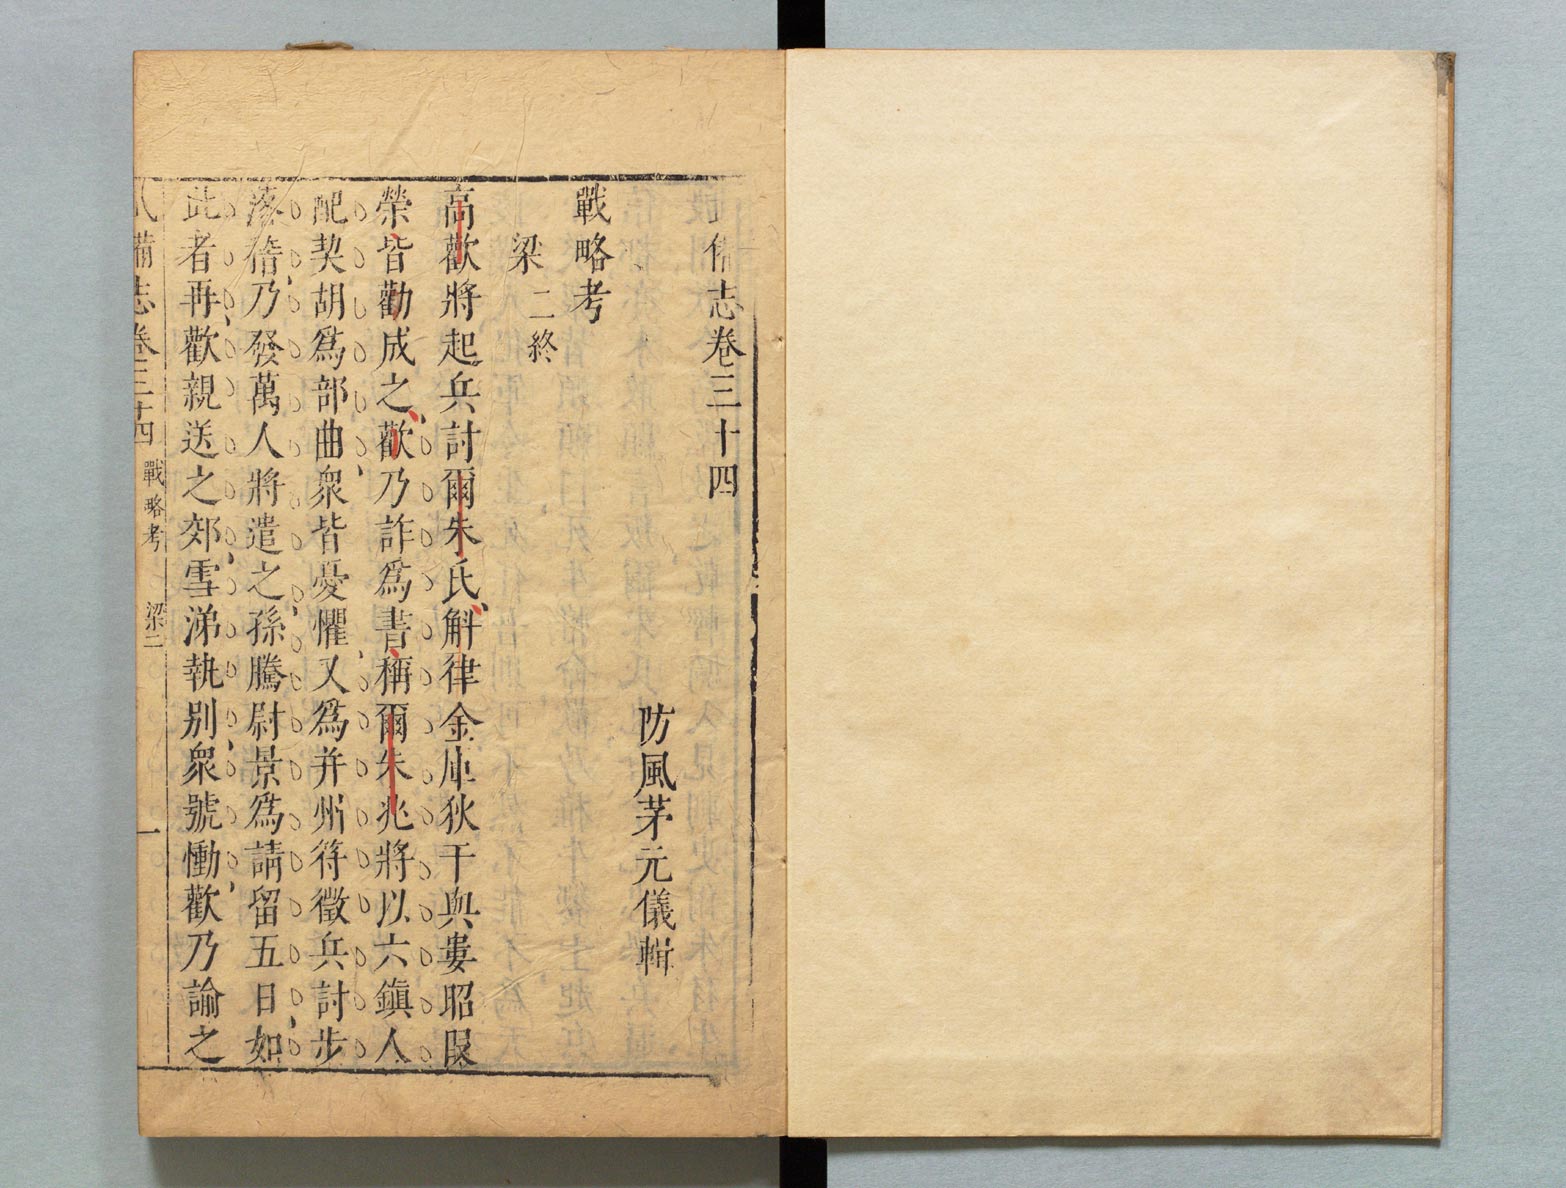 武備志卷三十四
防風茅元儀輯
戰略考
梁二終
高歡將起兵討爾朱氏斛律金庫狄干與婁昭叚
榮皆勸成之歡乃詐爲書稱爾朱兆將以六鎮人
配契胡爲部曲衆皆憂懼又爲并州符徵兵討步
落稽乃發萬人將遣之孫騰尉景爲請留五日如
此者再歡親送之郊雪涕執別衆號慟歡乃諭之
武備志卷三十四 戰略考 梁二 一